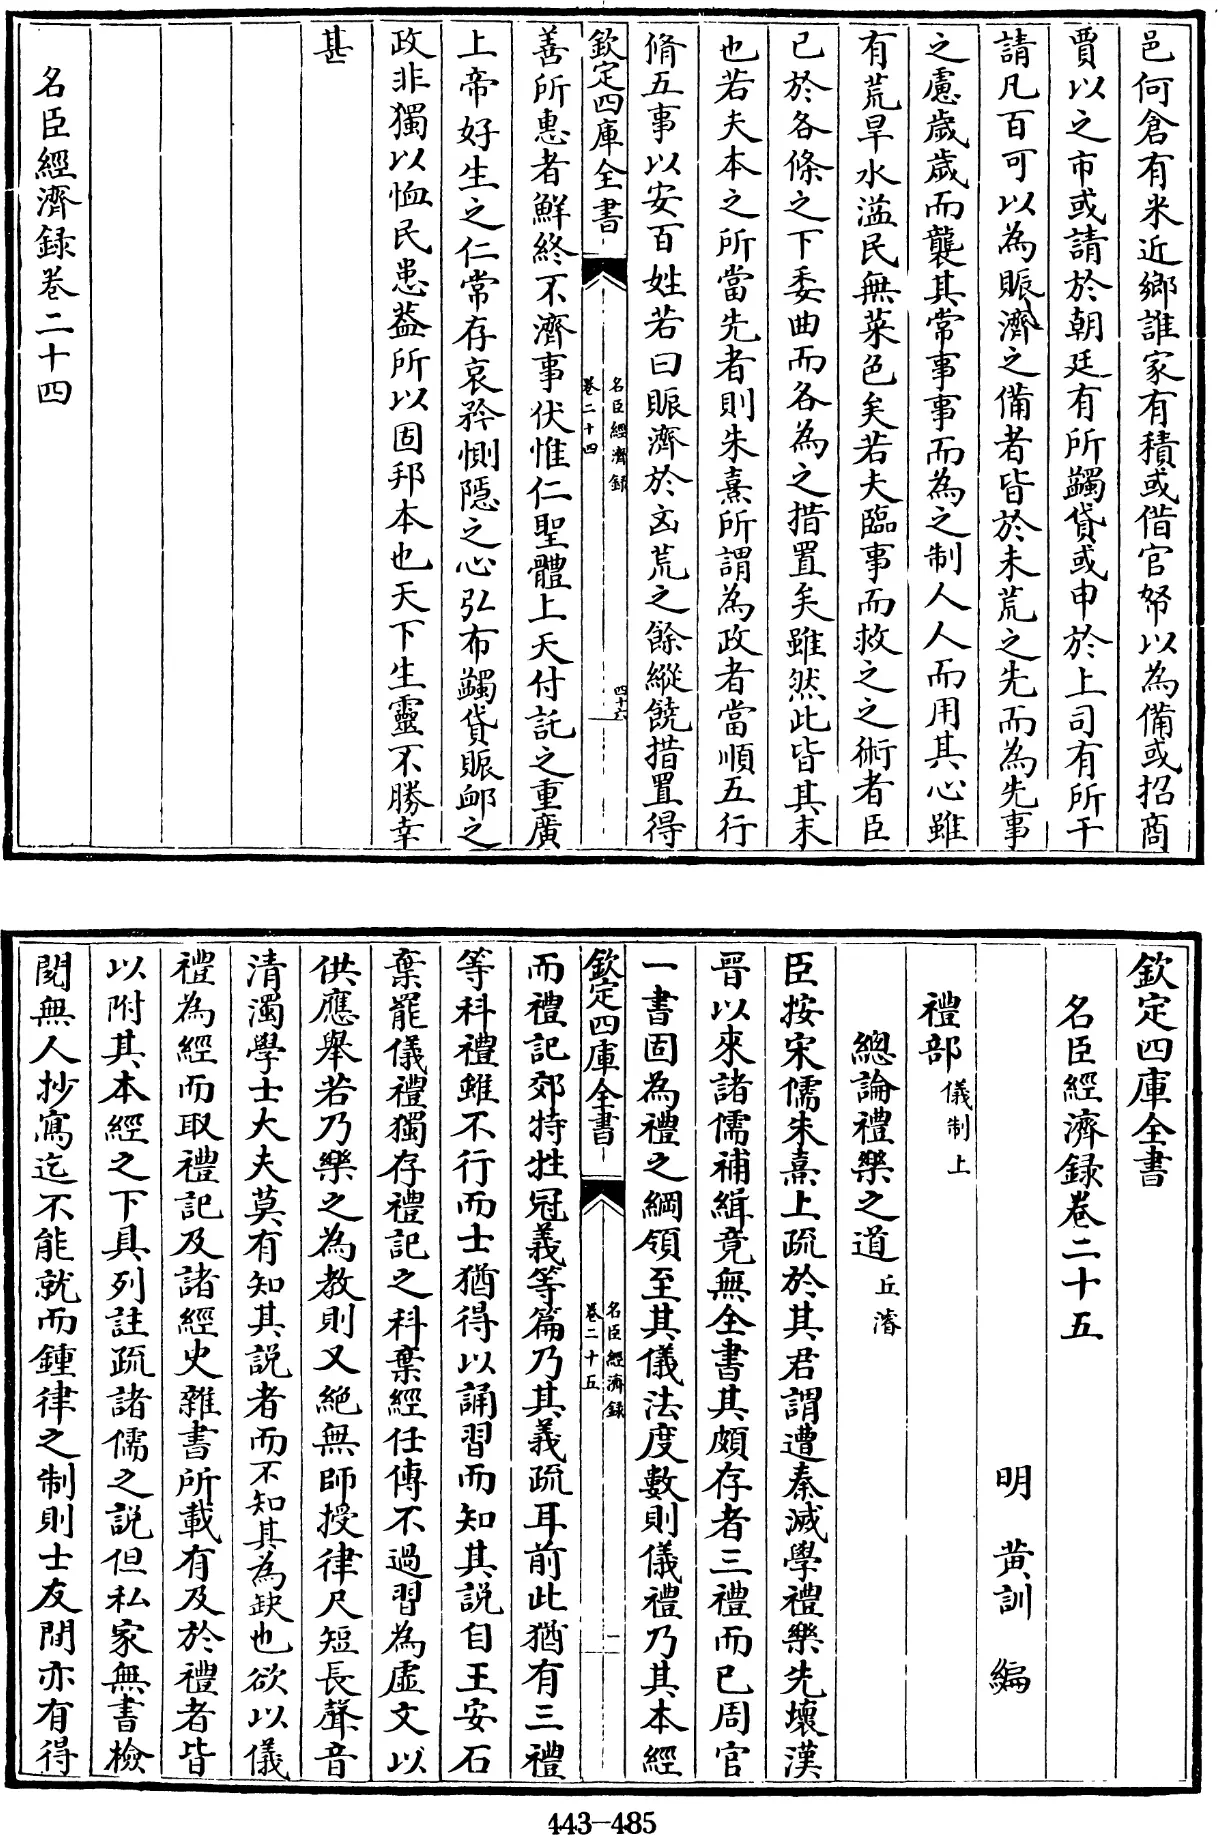 邑何倉有米近鄉誰家有積或借官帑以為備或招商
賈以之市或請於朝廷有所蠲貸或申於上司有所干
請凡百可以為賑濟之備者皆於未荒之先而為先事
之慮歲歲而襲其常事事而為之制人人而用其心雖
有荒旱水溢民無菜色矣若夫臨事而救之之術者臣
已於各條之下委曲而各為之措置矣雖然此皆其末
也若夫本之所當先者則朱熹所謂為政者當順五行
脩五事以安百姓若曰賑濟於凶荒之餘縱饒措置得
欽定四庫全書
名臣經濟録
卷二十四
四十六
善所惠者鮮終不濟事伏惟仁聖體上天付託之重廣
上帝好生之仁常存哀矜惻隱之心弘布蠲貸賑卹之
政非獨以恤民患葢所以固邦本也天下生靈不勝幸
甚
名臣經濟録卷二十四
欽定四庫全書
名臣經濟録卷二十五
明 黄訓 編
禮部儀制上
總論禮樂之道丘濬
臣按宋儒朱熹上疏於其君謂遭秦滅學禮樂先壞漢
晉以來諸儒補緝竟無全書其頗存者三禮而已周官
一書固為禮之綱領至其儀法度數則儀禮乃其本經
欽定四庫全書
名臣經濟録
卷二十五
一
而禮記郊特牲冠義等篇乃其義疏耳前此猶有三禮
等科禮雖不行而士猶得以誦習而知其説自王安石
棄罷儀禮獨存禮記之科棄經任傳不過習為虛文以
供應舉若乃樂之為教則又絶無師授律尺短長聲音
清濁學士大夫莫有知其説者而不知其為缺也欲以儀
禮為經而取禮記及諸經史雜書所載有及於禮者皆
以附其本經之下具列註疏諸儒之説但私家無書檢
閱無人抄寫迄不能就而鍾律之制則士友間亦有得
443-485